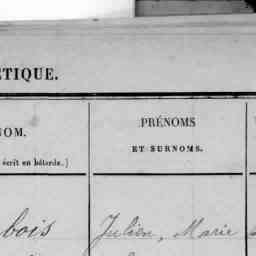 ÉTIQUE.
NOM. PRÉNOMS
écrit en bâtarde.) ET SURNOMS.
bois Julien, Marie